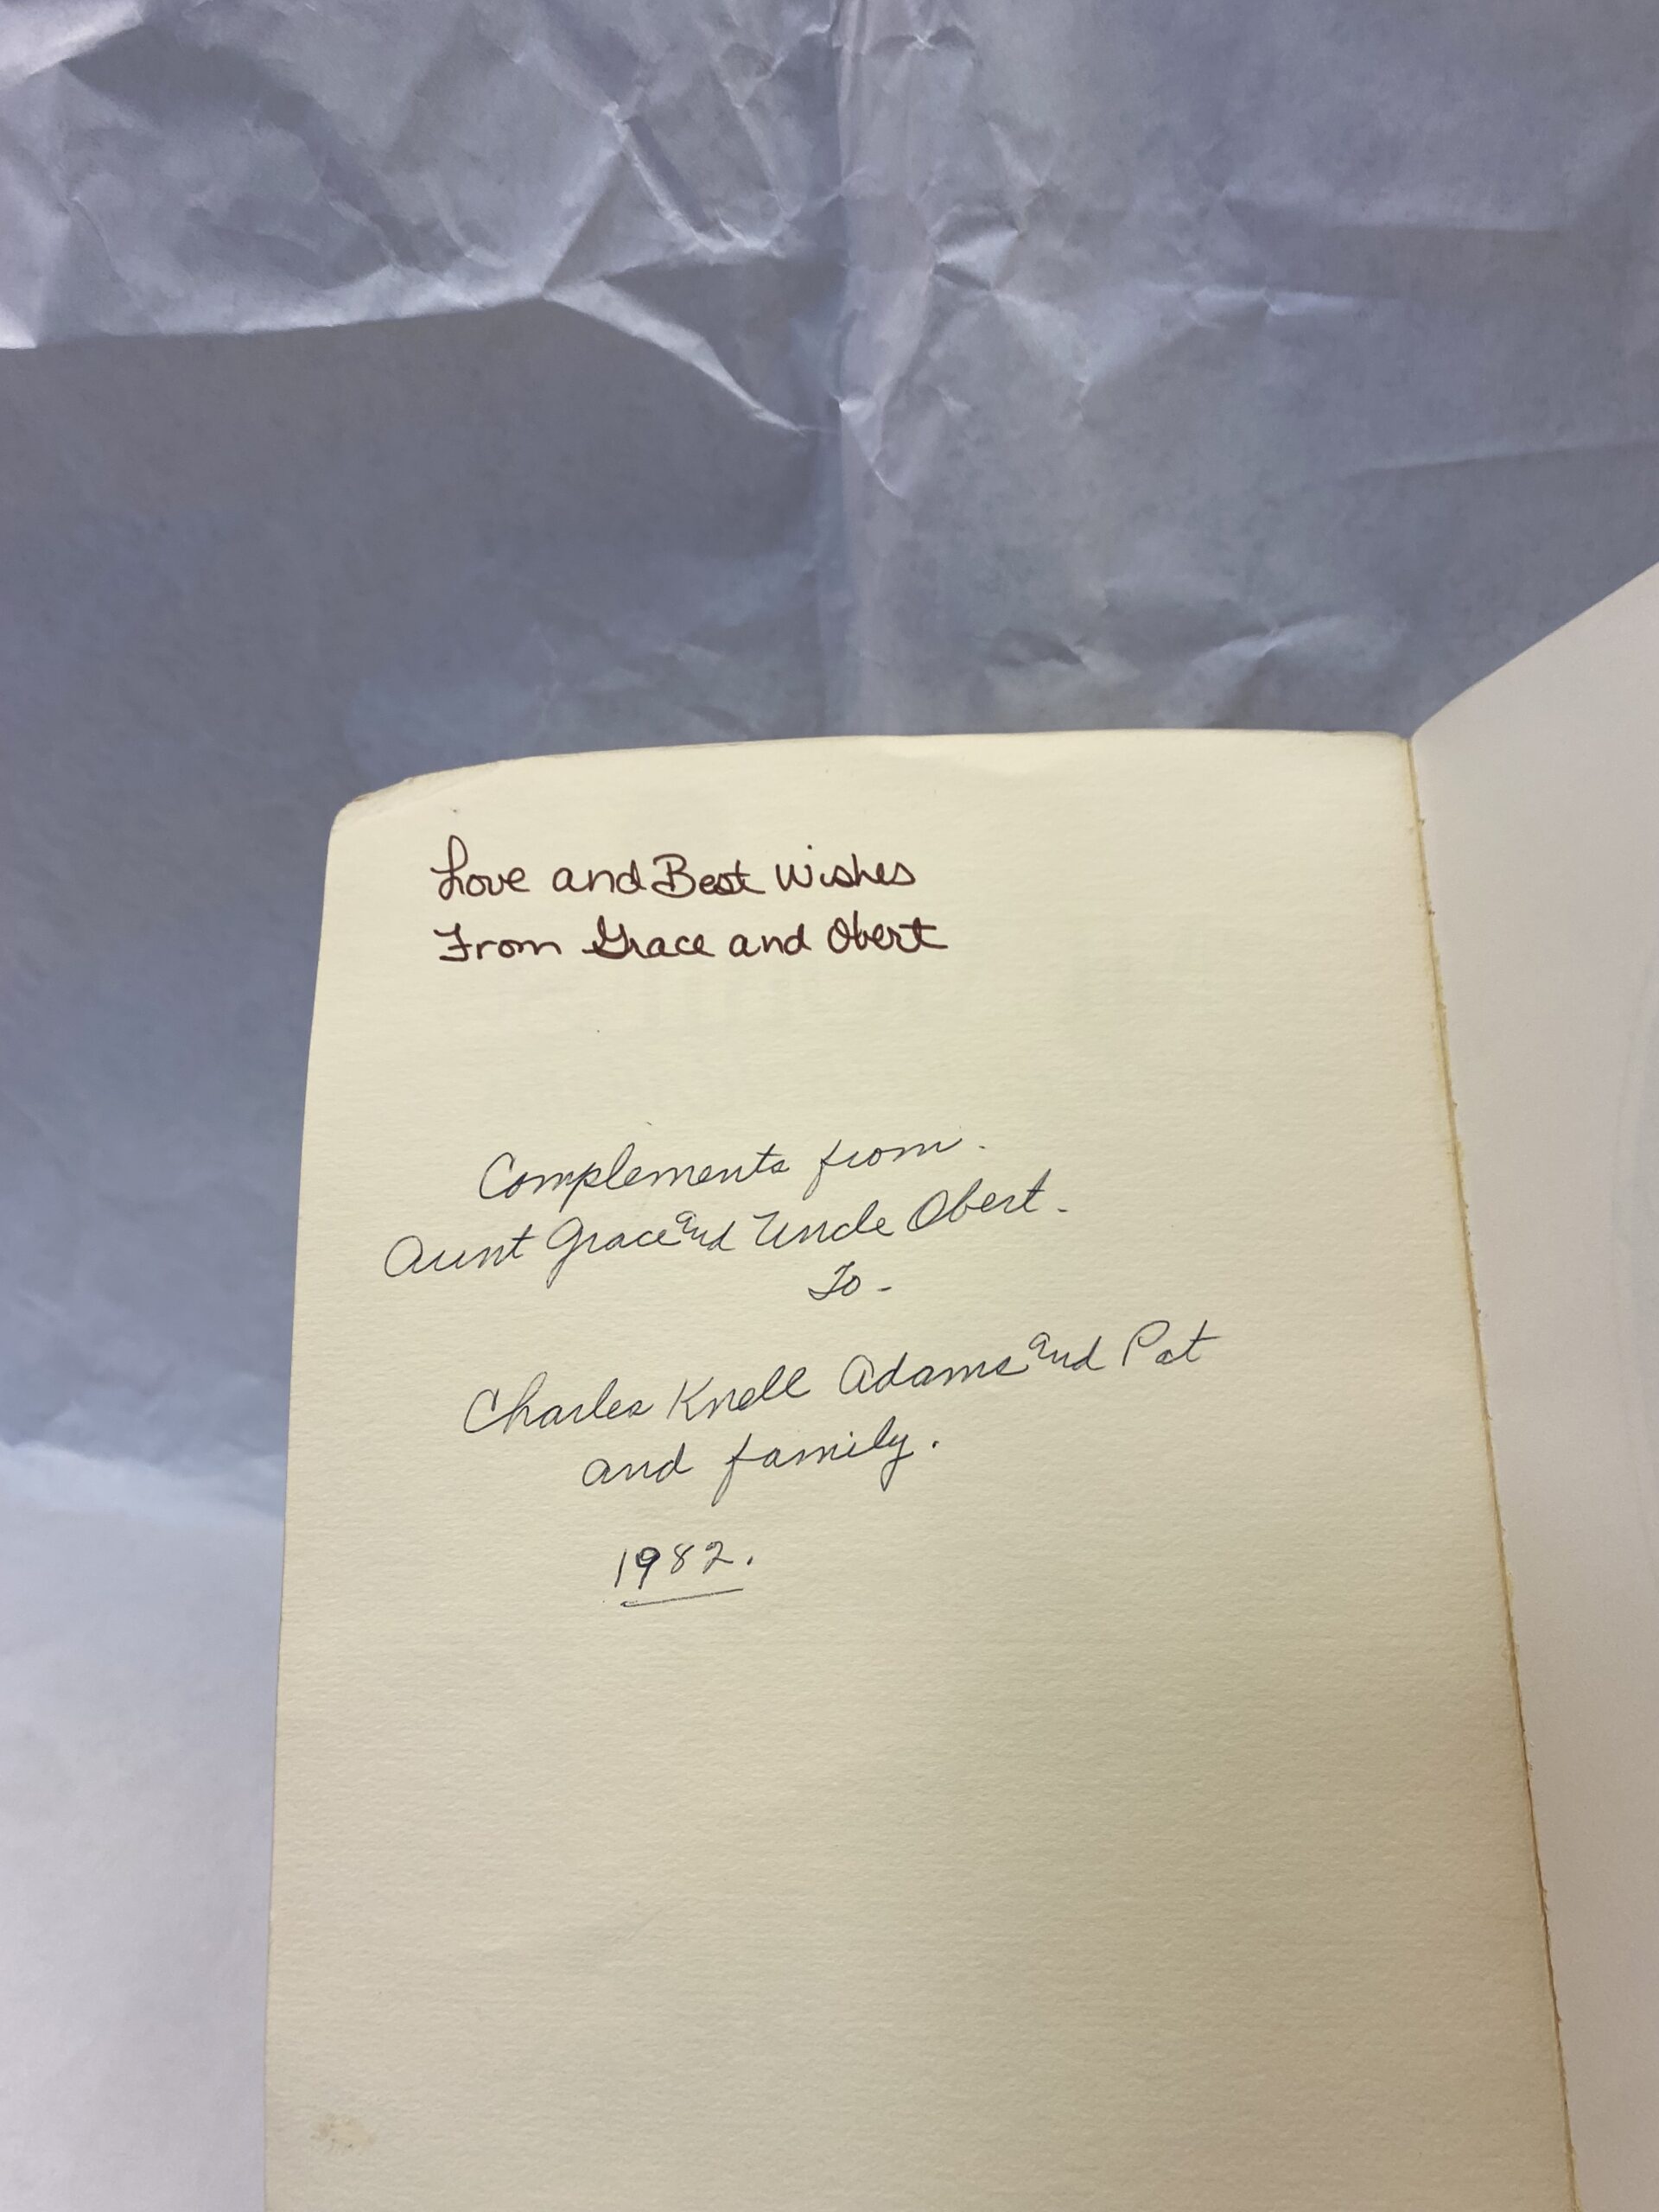 Love and Best Wishes
From Grace and Obert
Complements from.
Aunt Grace and Uncle Obert -
To -
Charles Knell Adams and Pat
and family.
1982.